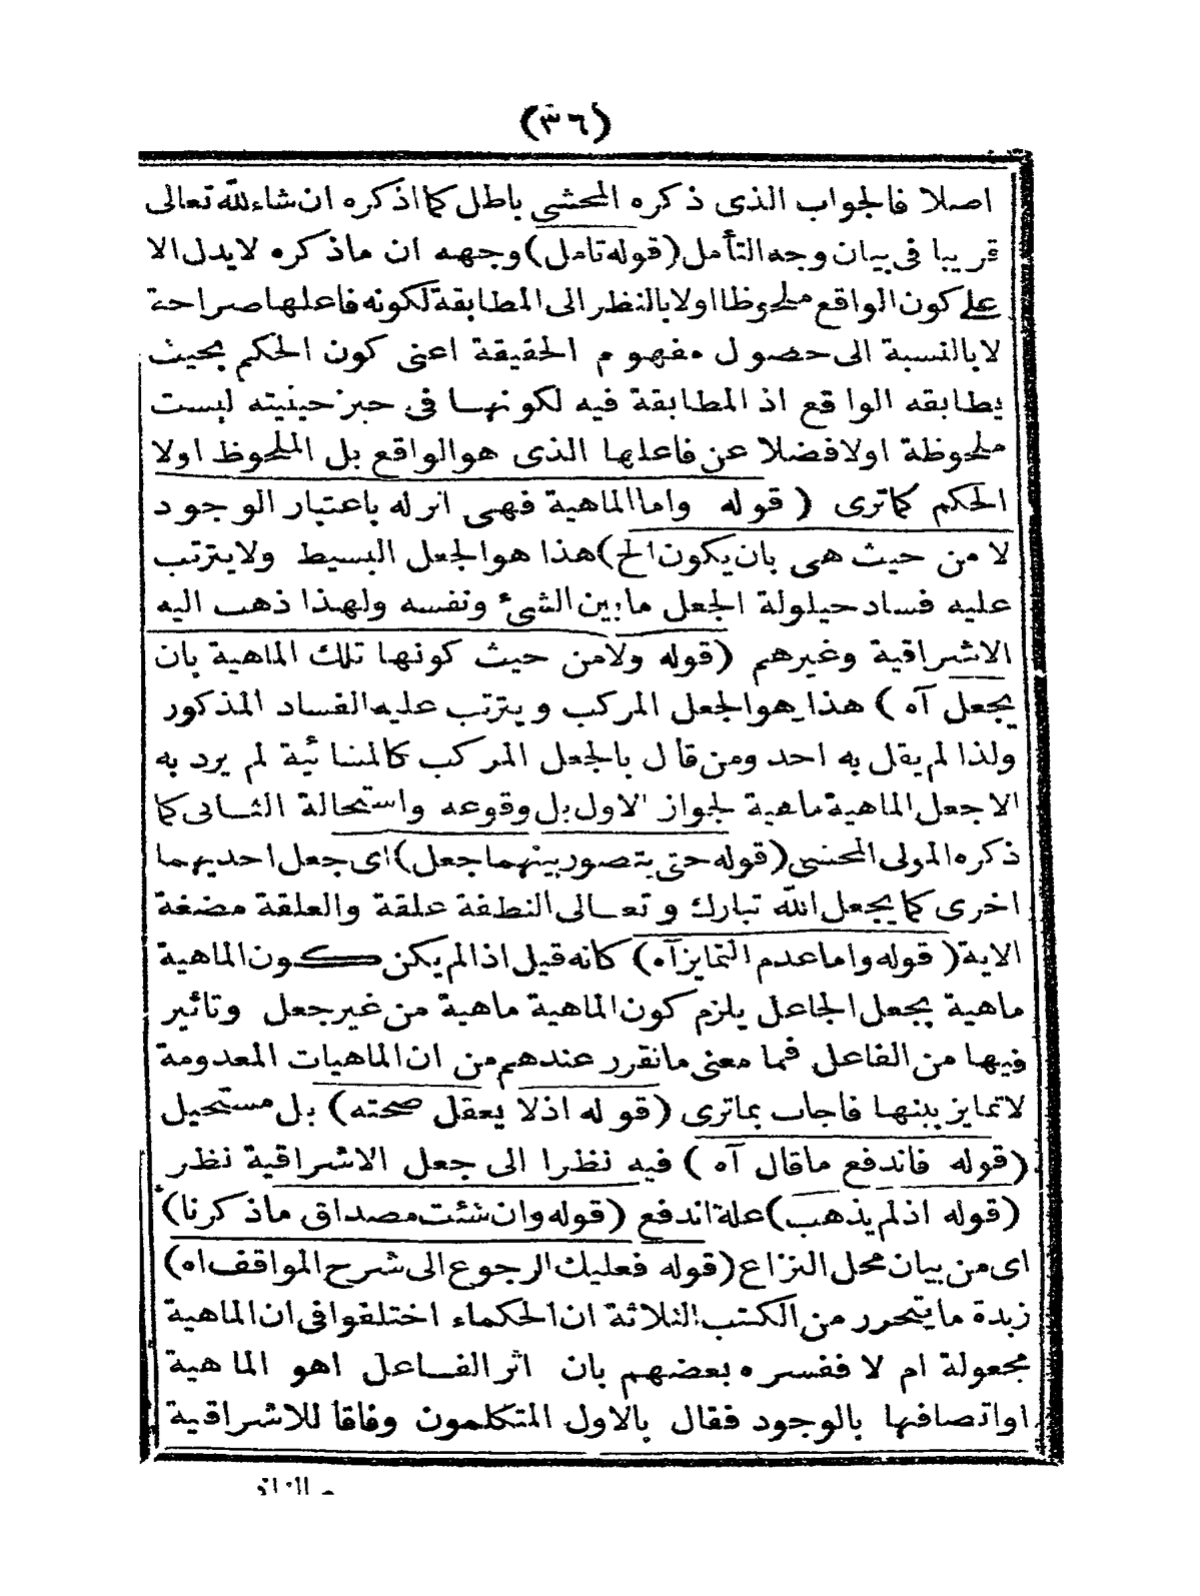 (٣٦)
اصلا فالجواب الذى ذكره المحشى باطل كما اذكره ان شاء لله تعالى
قريبا فى بيان وجه التأمل (قوله تامل) وجهه ان ماذكره لايدل الا
على كون الواقع ملحوظا اولا بالنظر الى المطابقة لكونه فاعلها صراحة
لا بالنسبة الى حصول مفهوم الحقيقة اعنى كون الحكم بحيث
يطابقه الواقع اذ المطابقة فيه لكونها فى حيز حيثيته ليست
ملحوظة اولا فضلا عن فاعلها الذى هو الواقع بل الملحوظ اولا
الحكم كماترى (قوله واما الماهية فهى اثر له باعتبار الوجود
لا من حيث هى بان يكون الخ) هذا هو الجعل البسيط ولايترتب
عليه فساد حيلولة الجعل مابين الشئ ونفسه ولهذا ذهب اليه
الاشراقية وغيرهم (قوله ولامن حيث كونها تلك الماهية بان
يجعل آه) هذا هو الجعل المركب ويترتب عليه الفساد المذكور
ولذا لم يقل به احد ومن قال بالجعل المركب كالمشائية لم يرد به
الا جعل الماهية ماهية لجواز الاول بل وقوعه واستحالة الثانى كما
ذكره المولى المحشى (قوله حتى يتصور بينهما جعل) اى جعل احديهما
اخرى كما يجعل الله تبارك وتعالى النطفة علقة والعلقة مضغة
الاية (قوله واما عدم التمايز آه) كانه قيل اذا لم يكن كون الماهية
ماهية بجعل الجاعل يلزم كون الماهية ماهية من غير جعل وتاثير
فيها من الفاعل فما معنى ماتقرر عندهم من ان الماهيات المعدومة
لاتمايز بينها فاجاب بماترى (قوله اذ لا يعقل صحته) بل مستحيل
(قوله فاندفع ماقال آه) فيه نظرا الى جعل الاشراقية نظر
(قوله اذ لم يذهب) علة اندفع (قوله وان شئت مصداق ماذكرنا)
اى من بيان محل النزاع (قوله فعليك الرجوع الى شرح المواقف اه)
زبدة مايتحرر من الكتب الثلاثة ان الحكماء اختلفوا فى ان الماهية
مجعولة ام لا ففسره بعضهم بان اثر الفاعل اهو الماهية
اواتصافها بالوجود فقال بالاول المتكلمون وفاقا للاشراقية